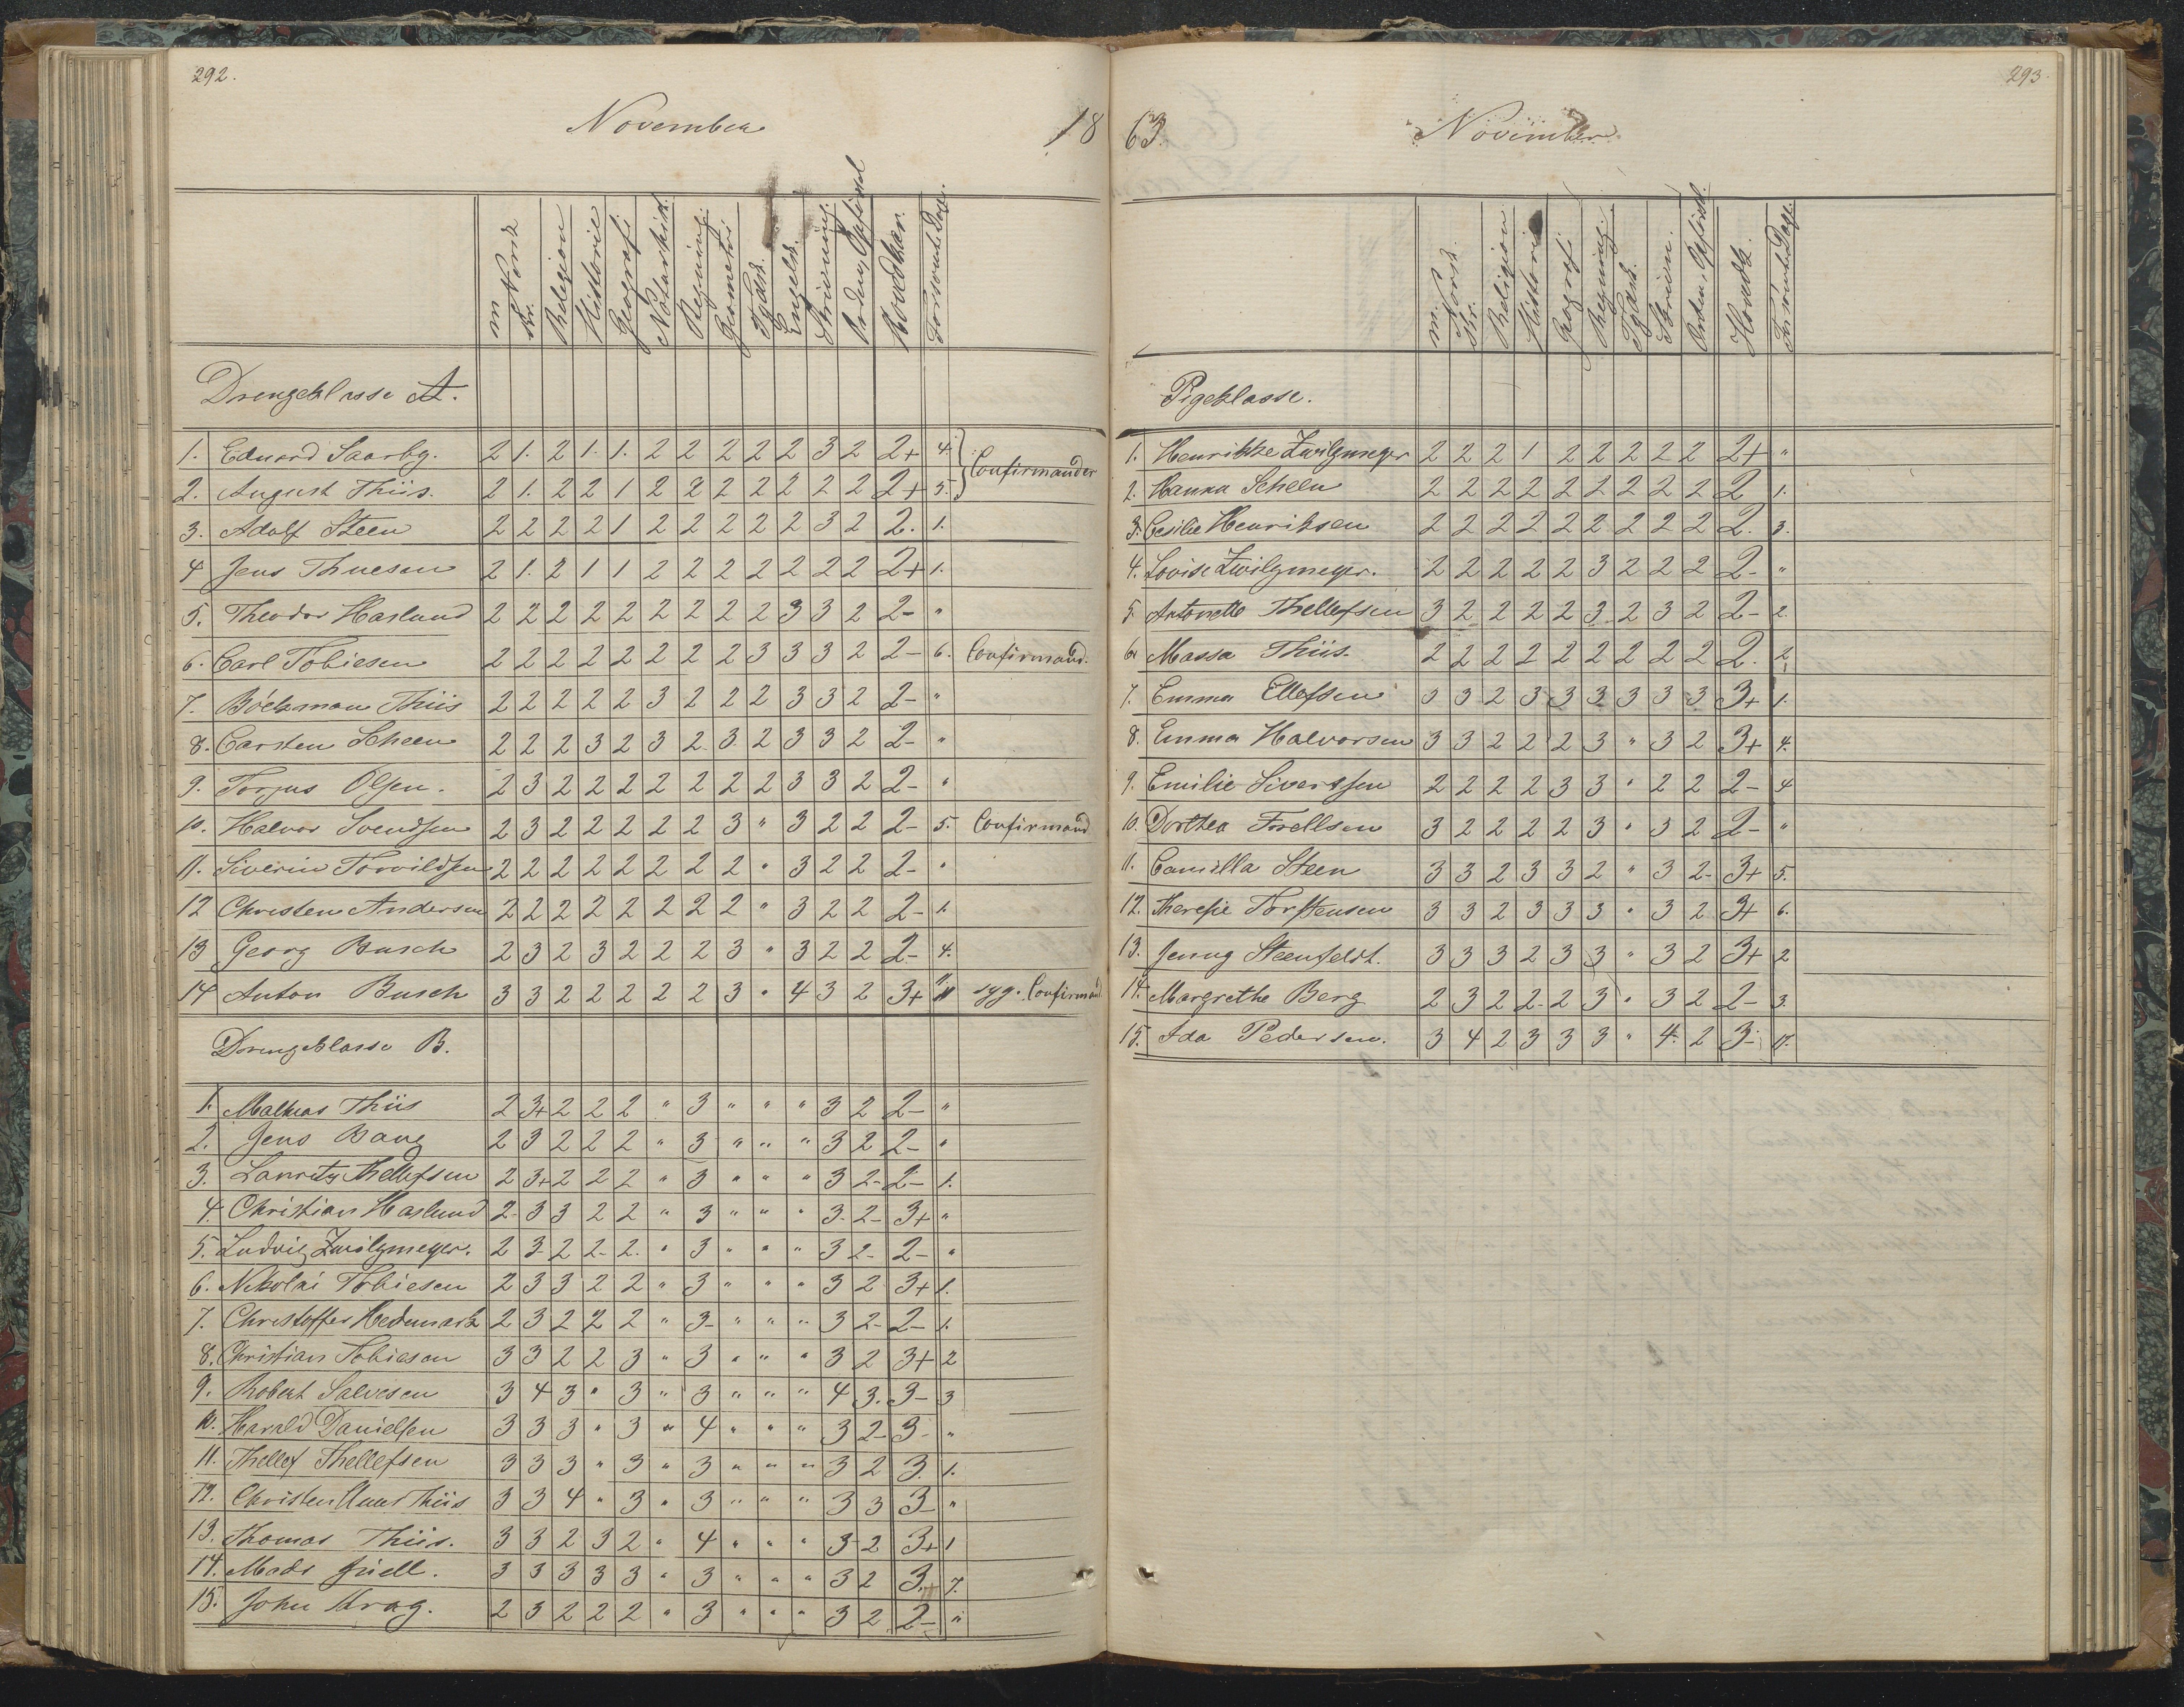 292.
November 18
m. Norsk skr. Religion Historie Geografi Naturhist. Regning. Geometri Tydsk. Engelsk. Skrivning. Orden, Opførsel Hovedkar. Forsømte Dage.
Drengeklasse A.
1. Eduard Saarby. 2 1. 2 1. 1. 2 2 2 2 2 3 2 2+ 4. Confirmander
2. August Thiis. 2 1. 2 2 1 2 2 2 2 2 2 2 2+ 5.
3. Adolf Steen 2 2 2 2 1 2 2 2 2 2 3 2 2. 1.
4 Jens Thuesen 2 1. 2 1 1 2 2 2 2 2 2 2 2+ 1.
5. Theodor Haslund 2 2 2 2 2 2 2 2 2 3 3 2 2- "
6. Carl Tobiesen 2 2 2 2 2 2 2 2 3 3 3 2 2- 6. Confirmand.
7. Böckman Thiis 2 2 2 2 2 3 2 2 2 3 3 2 2- "
8. Carsten Scheen 2 2 2 3 2 3 2 3 2 3 3 2 2- "
9. Torjus Olsen. 2 3 2 2 2 2 2 2 2 3 3 2 2- "
10. Halvor Svendsen 2 3 2 2 2 2 2 3 " 3 2 2 2- 5. Confirmand
11. Siverin Torvildsen 2 2 2 2 2 2 2 2 " 3 2 2 2- "
12 Christen Andersen 2 2 2 2 2 2 2 2 " 3 2 2 2- 1.
13 Georg Busch 2 3 2 3 2 2 2 3 " 3 2 2 2- 4.
14 Anton Busch 3 3 2 2 2 2 2 3 " 4 3 2 3+ 11 syg. Confirmand
Drengeklasse B.
1. Mathias Thiis 2 3+ 2 2 2 " 3 " " " 3 2 2- "
2. Jens Bang 2 3 2 2 2 " 3 " " " 3 2 2- "
3. Lauritz Thellefsen 2 3+ 2 2 2 " 3 " " " 3 2- 2- 1.
4. Christian Haslund 2- 3 3 2 2 " 3 " " " 3- 2- 3+ "
5. Ludvig Zwilgmeyer. 2 3- 2 2- 2. " 3 " " " 3 2- 2- "
6. Nikolai Tobiesen 2 3 3 2 2 " 3 " " " 3 2 3+ 1.
7. Christoffer Hedemark 2 3 2 2 2 " 3- " " " 3 2- 2- 1.
8. Christian Tobiesen 3 3 2 2 3 " 3 " " " 3 2 3+ 2
9. Robert Salvesen 3 4 3 " 3 " 3 " " " 4 3. 3- 3
10. Harald Danielsen 3 3 3 " 3 " 4 " " " 3 2- 3- "
11. Thellef Thellefsen 3 3 3 " 3 " 3 " " " 3 2 3. 1.
12. Christen Thiis 3 3 4 " 3 " 3 " " " 3 3 3- "
13. Thomas Thiis. 3 3 2 3 2 " 4 " " " 3- 2 3+ 1
14. Mads Juell. 3 3 3 3 3 " 3 " " " 3 2 3+ 7.
15. John Krag. 2 3 2 2 2 " 3 " " " 3 2 2- "
293.
63. November
m. Norsk. skr. Religion Historie Geografi Regning. Tydsk. Skrivn. Orden, Opførsl. Hovedk. Forsømte Dage.
Pigeklasse.
1. Henrikke Zwilgmeyer 2 2 2 1 2 2 2 2 2 2+ "
2. Hanna Scheen 2 2 2 2 2 2 2 2 2 2 1.
3. Cesilie Henriksen 2 2 2 2 2 2 2 2 2 2. 3.
4. Lovise Zwilgmeyer. 2 2 2 2 2 3 2 2 2 2- "
5. Antonette Thellefsen 3 2 2 2 2 3 2 3 2 2- 2.
6. Massa Thiis. 2 2 2 2 2 2 2 2 2 2. 2
7. Emma Ellefsen 3 3 2 3 3 3 3 3 3 3+ 1.
8. Emma Halvorsen 3 3 2 2 2 3 " 3 2 3+ 4.
9. Emilie Sivertsen 2 2 2 2 3 3 " 2 2 2- 4
10. Dorthea Forellsen 3 2 2 2 2 3 " 3 2 2- "
11. Camilla Steen 3 3 2 3 3 2 " 3 2- 3+ 5.
12. Theresie Torstensen 3 3 2 3 3 3 " 3 2 3+ 6.
13. Jenny Steenfeldt. 3 3 3 2 3 3 " 3 2 3+ 2
14. Margrethe Berg 2 3 2 2- 2 3 " 3 2 2- 3.
15. Ida Pedersen. 3 4 2 3 3 3 " 4. 2 3- 17.